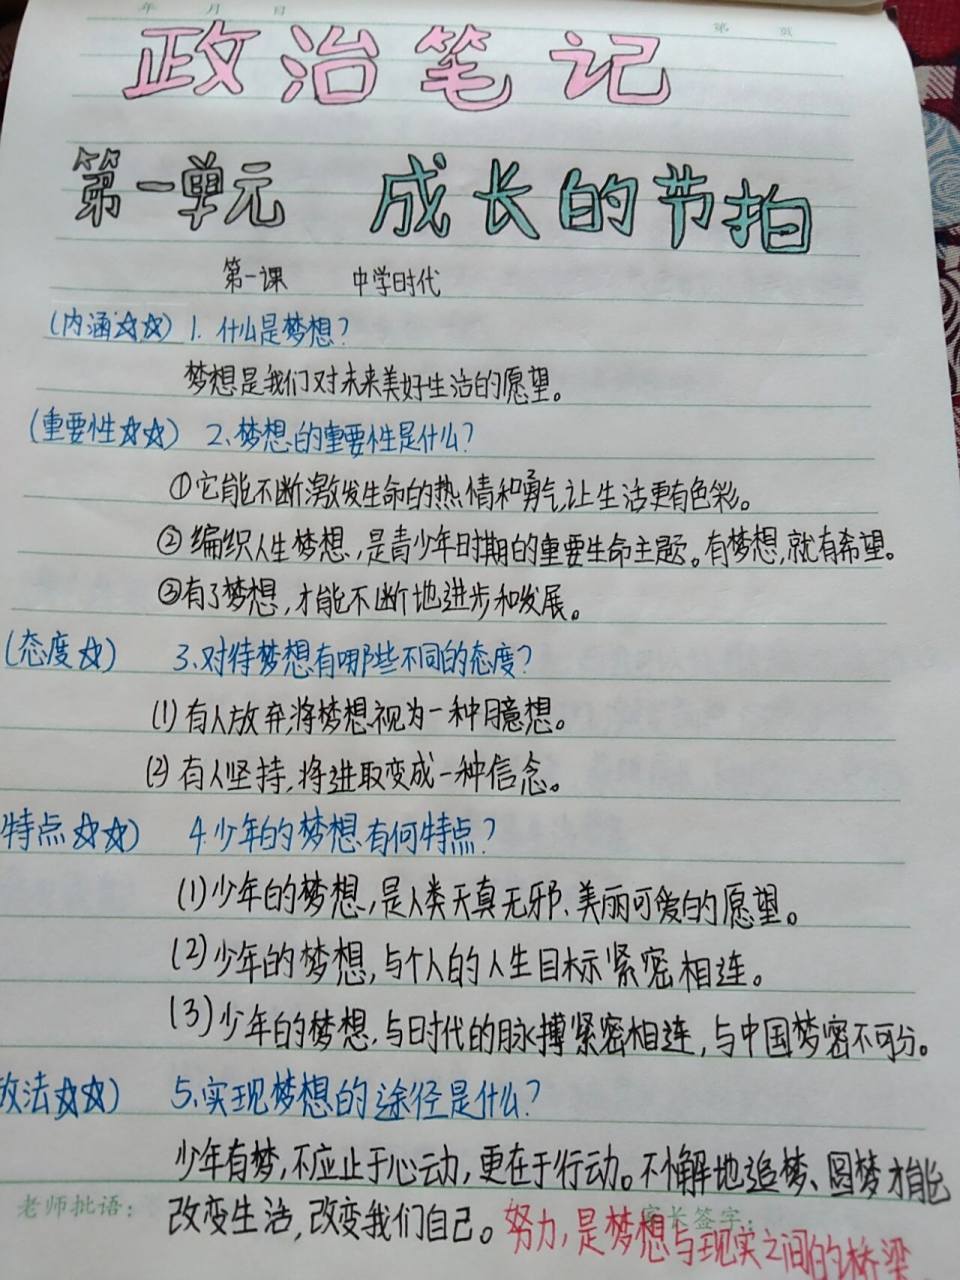 年 月 日
第 页
政治笔记
第一单元 成长的节拍
第一课 中学时代
(内涵☆☆) 1. 什么是梦想?
梦想是我们对未来美好生活的愿望。
(重要性☆☆) 2、梦想的重要性是什么?
①它能不断激发生命的热情和勇气,让生活更有色彩。
②编织人生梦想,是青少年时期的重要生命主题。有梦想,就有希望。
③有了梦想,才能不断地进步和发展。
(态度☆) 3、对待梦想有哪些不同的态度?
(1)有人放弃,将梦想视为一种臆想。
(2)有人坚持,将进取变成一种信念。
特点☆☆) 4.少年的梦想有何特点?
(1)少年的梦想,是人类天真无邪、美丽可爱的愿望。
(2)少年的梦想,与个人的人生目标紧密相连。
(3)少年的梦想,与时代的脉搏紧密相连,与中国梦密不可分。
做法☆☆) 5、实现梦想的途径是什么?
少年有梦,不应止于心动,更在于行动。不懈地追梦、圆梦才能
改变生活,改变我们自己。努力,是梦想与现实之间的桥梁
老师批语: 家长签字: